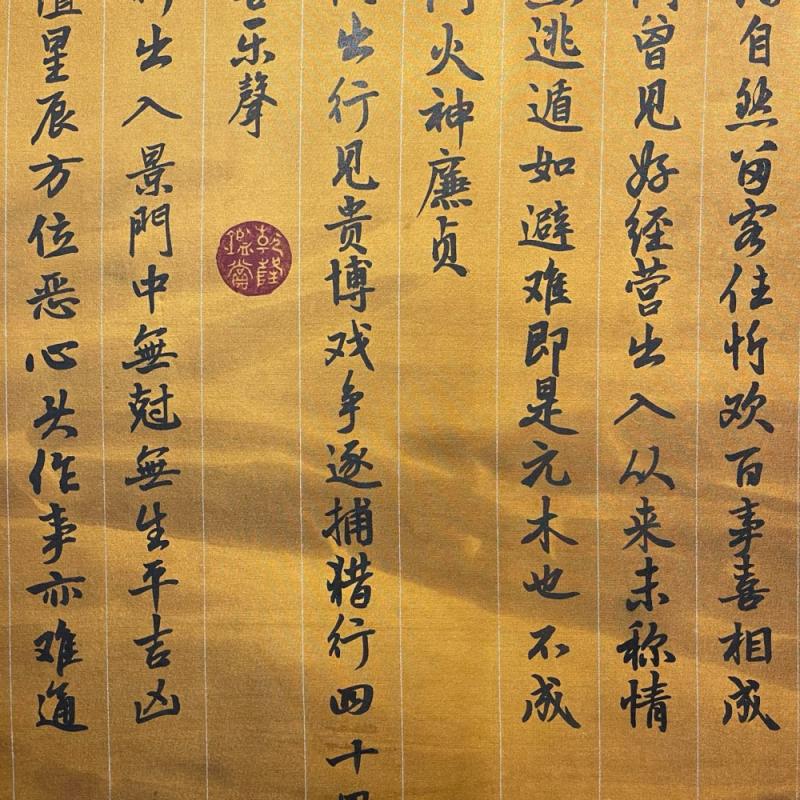 自然留客住忻欢百事喜相成
曾见好经营出入从来未称情
逃遁如避难即是元木也 不成
火神廉贞
出行见贵博戏争逐捕猎行四十
乐聲
乾隆鑑賞
出入景門中無尅無生平吉凶
星辰方位恶心头作事亦难通